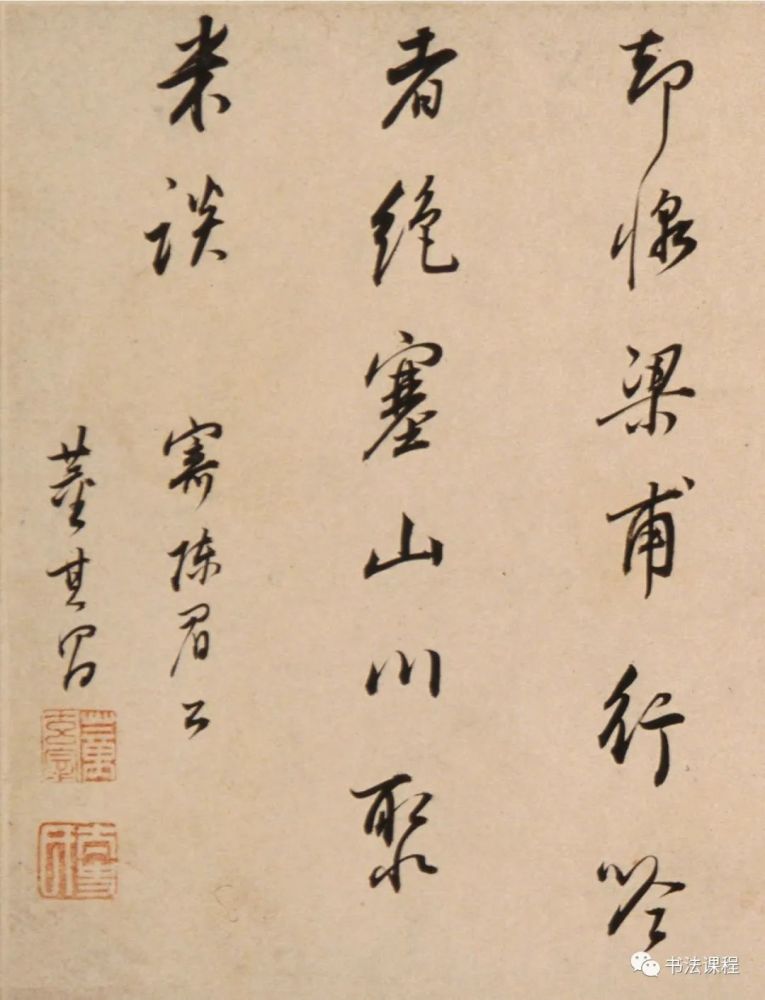 却怜梁甫行吟
者绝塞山川聚
米谈
寄陈眉公
董其昌
书法课程